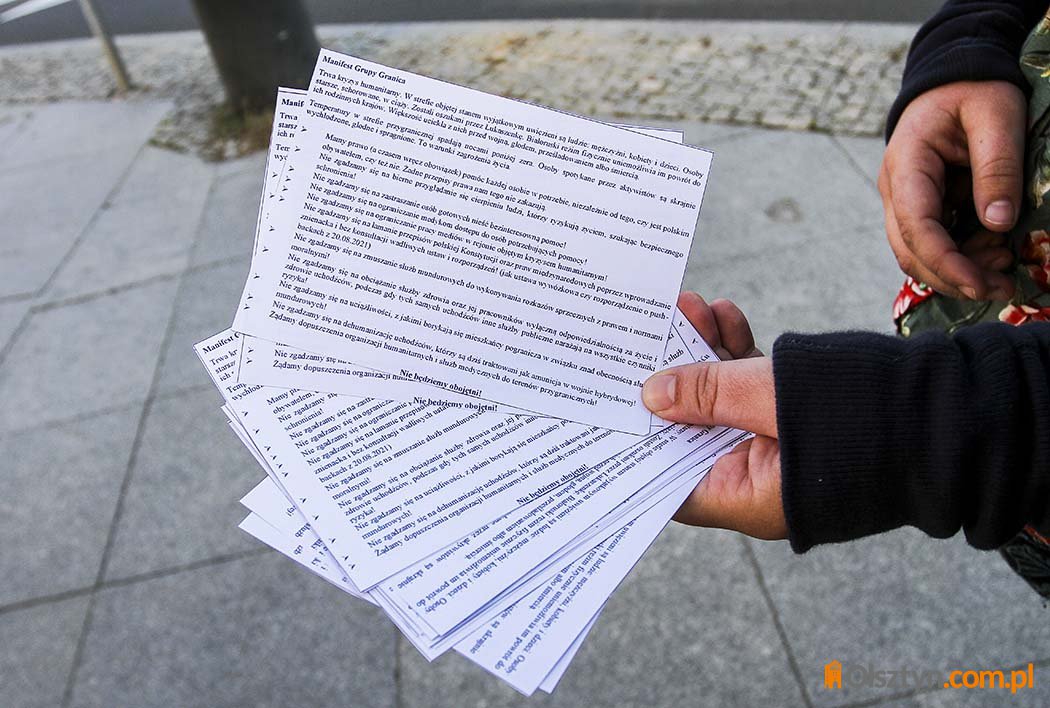 Manifest Grupy Granica
Trwa kryzys humanitarny. W strefie objętej stanem wyjątkowym uwięzieni są ludzie: mężczyźni, kobiety i dzieci. Osoby
starsze, schorowane, w ciąży. Zostali oszukani przez Łukaszenkę. Białoruski reżim fizycznie uniemożliwia im powrót do
ich rodzinnych krajów. Większość uciekła z nich przed wojną, głodem, prześladowaniem albo śmiercią.
Temperatury w strefie przygranicznej spadają nocami poniżej zera. Osoby spotykane przez aktywistów są skrajnie
wychłodzone, głodne i spragnione. To warunki zagrożenia życia.
Mamy prawo (a czasem wręcz obowiązek) pomóc każdej osobie w potrzebie, niezależnie od tego, czy jest polskim
obywatelem, czy też nie. Żadne przepisy prawa nam tego nie zakazują.
Nie zgadzamy się na bierne przyglądanie się cierpieniu ludzi, którzy ryzykują życiem, szukając bezpiecznego
schronienia!
Nie zgadzamy się na zastraszanie osób gotowych nieść bezinteresowną pomoc!
Nie zgadzamy się na ograniczanie medykom dostępu do osób potrzebujących pomocy!
Nie zgadzamy się na ograniczanie pracy mediów w rejonie objętym kryzysem humanitarnym!
Nie zgadzamy się na łamanie przepisów polskiej Konstytucji oraz praw międzynarodowych poprzez wprowadzanie
znienacka i bez konsultacji wadliwych ustaw i rozporządzeń! (jak ustawa wywózkowa czy rozporządzenie o push-
backach z 20.08.2021)
Nie zgadzamy się na zmuszanie służb mundurowych do wykonywania rozkazów sprzecznych z prawem i normami
moralnymi!
Nie zgadzamy się na obciążanie służby zdrowia oraz jej pracowników wyłączną odpowiedzialnością za życie i
zdrowie uchodźców, podczas gdy tych samych uchodźców inne służby publiczne narażają na wszystkie czynniki
ryzyka!
Nie zgadzamy się na uciążliwości, z jakimi borykają się mieszkańcy pogranicza w związku z nad obecnością służb
mundurowych!
Nie zgadzamy się na dehumanizację uchodźców, którzy są dziś traktowani jak amunicja w wojnie hybrydowej!
Żądamy dopuszczenia organizacji humanitarnych i służb medycznych do terenów przygranicznych!
Nie będziemy obojętni!
Olsztyn.com.pl